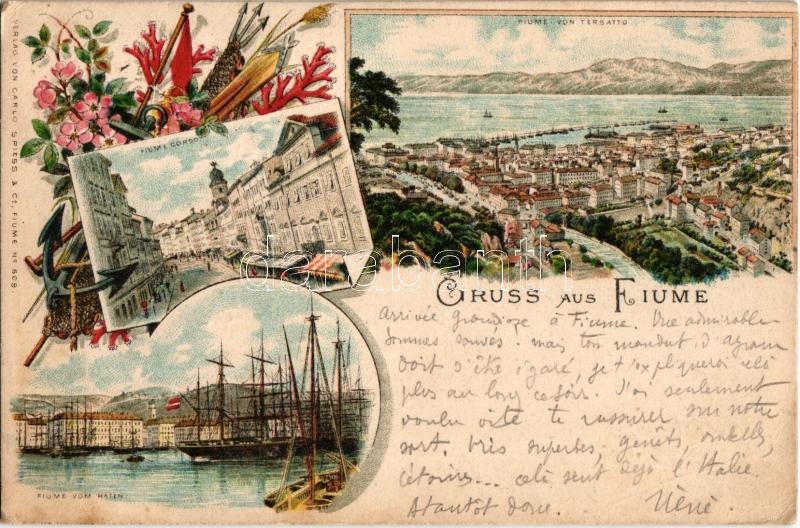 VERLAG VON CARLO SPIESS & Cº, FIUME Nº 609.
FIUME-VON TERSATTO
FIUME CORSO
darabanth
GRUSS AUS FIUME
Arrivée grandiose à Fiume. Vue admirable
sommes sauvés. mais ton mandat d'agram
doit s'être égaré, je t'expliquerai celà
plus au long ce soir. J'ai seulement
voulu vite te rassurer sur notre
sort. très superbes, genêts,
cela sent déjà l'Italie.
Atantôt donc.
FIUME VOM HAFEN